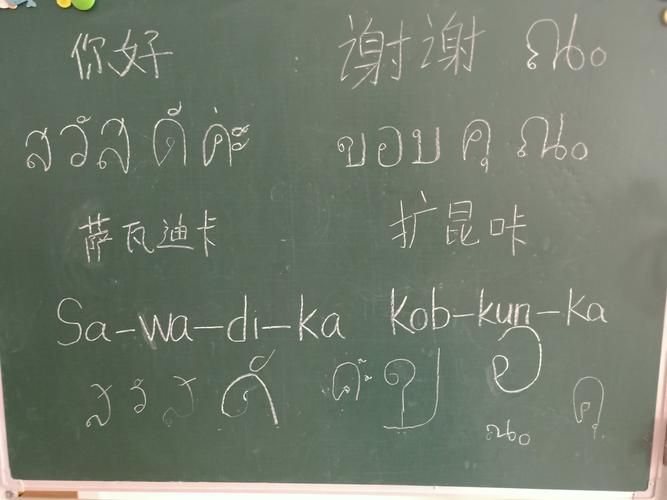 你好 谢谢 ณ
สวัสดีค่ะ ขอบคุณ
萨瓦迪卡 扩昆咔
Sa-wa-di-ka Kob-kun-ka
ส ว ส ด ค่ะ ข อ
ณ คุ